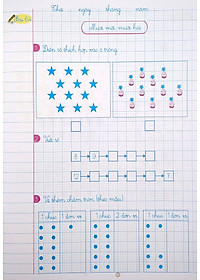 Thứ ngày tháng năm
Mười một, mười hai
1 Điền số thích hợp vào ô trống
2 Viết số
8 9
12 7
3 Vẽ thêm chấm tròn (theo mẫu)
1 chục 1 đơn vị 1 chục 2 đơn vị 1 chục 1 đơn vị